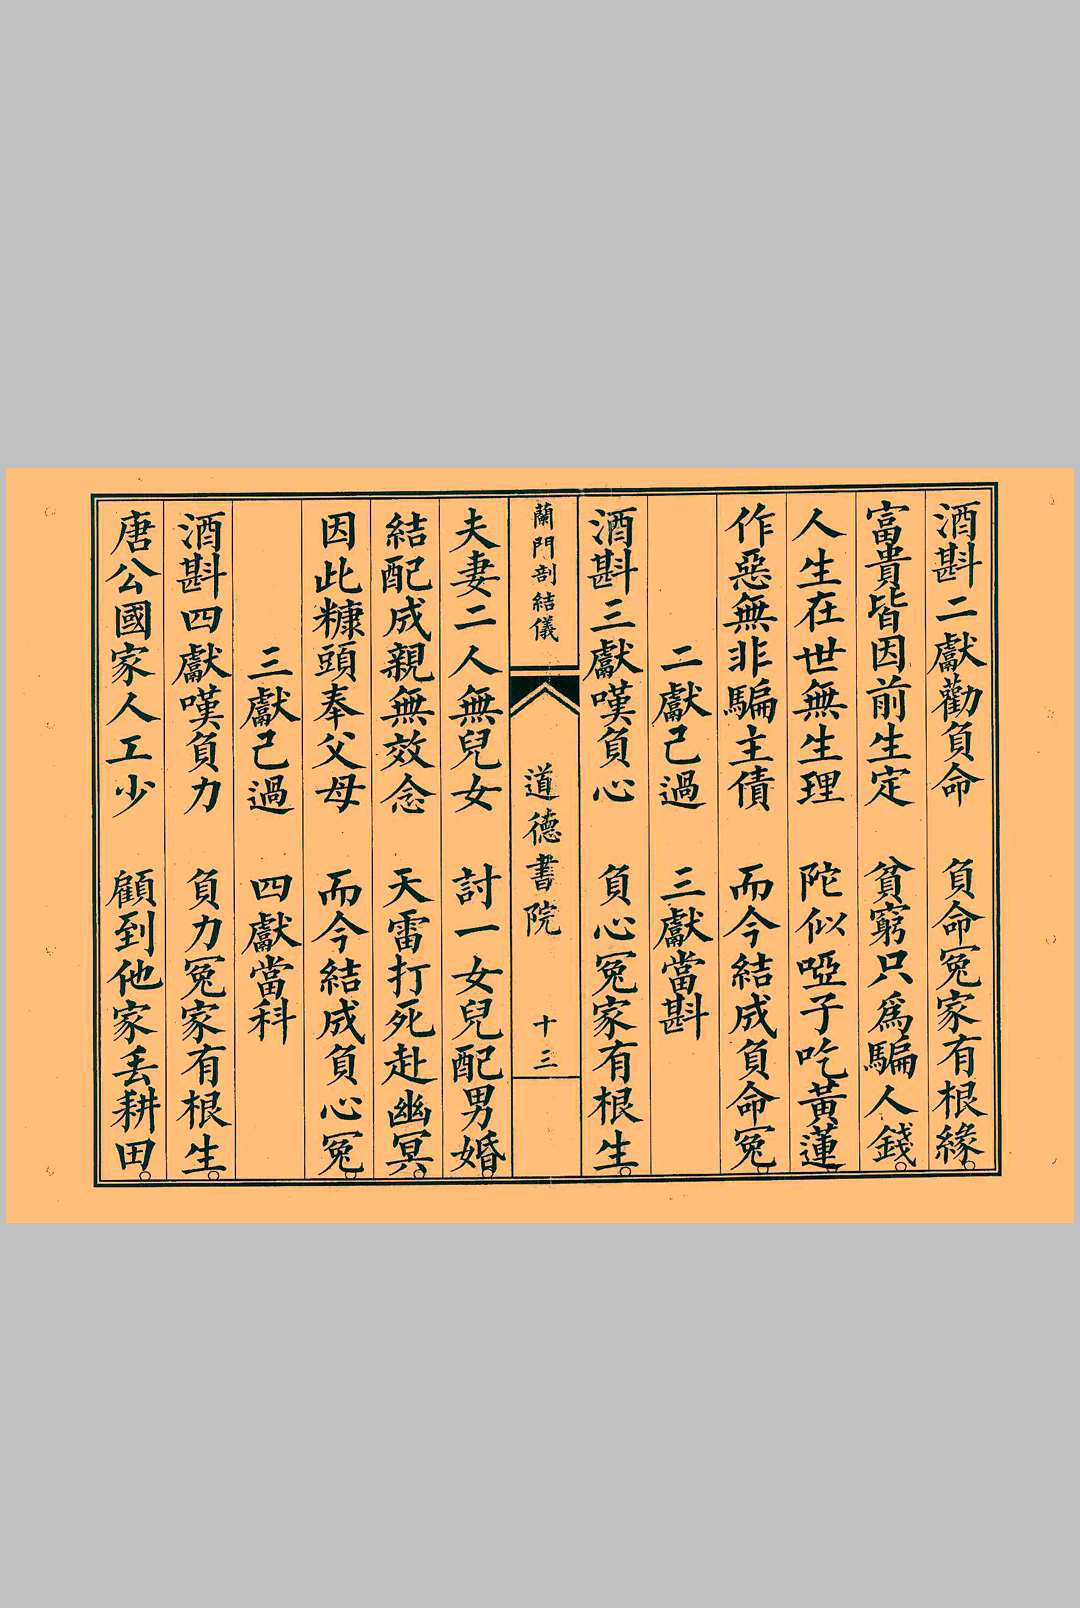 酒斟二獻勸負命　負命冤家有根緣。
富貴皆因前生定　貧窮只爲騙人錢。
人生在世無生理　陀似啞子吃黃蓮。
作惡無非騙主債　而今結成負命冤。
二獻己過　三獻當斟
酒斟三獻嘆負心　負心冤家有根生。
蘭門剖結儀　道德書院　十三
夫妻二人無兒女　討一女兒配男婚。
結配成親無效念　天雷打死赴幽冥。
因此糠頭奉父母　而今結成負心冤。
三獻己過　四獻當科
酒斟四獻嘆負力　負力冤家有根生。
唐公國家人工少　顧到他家丢耕田。